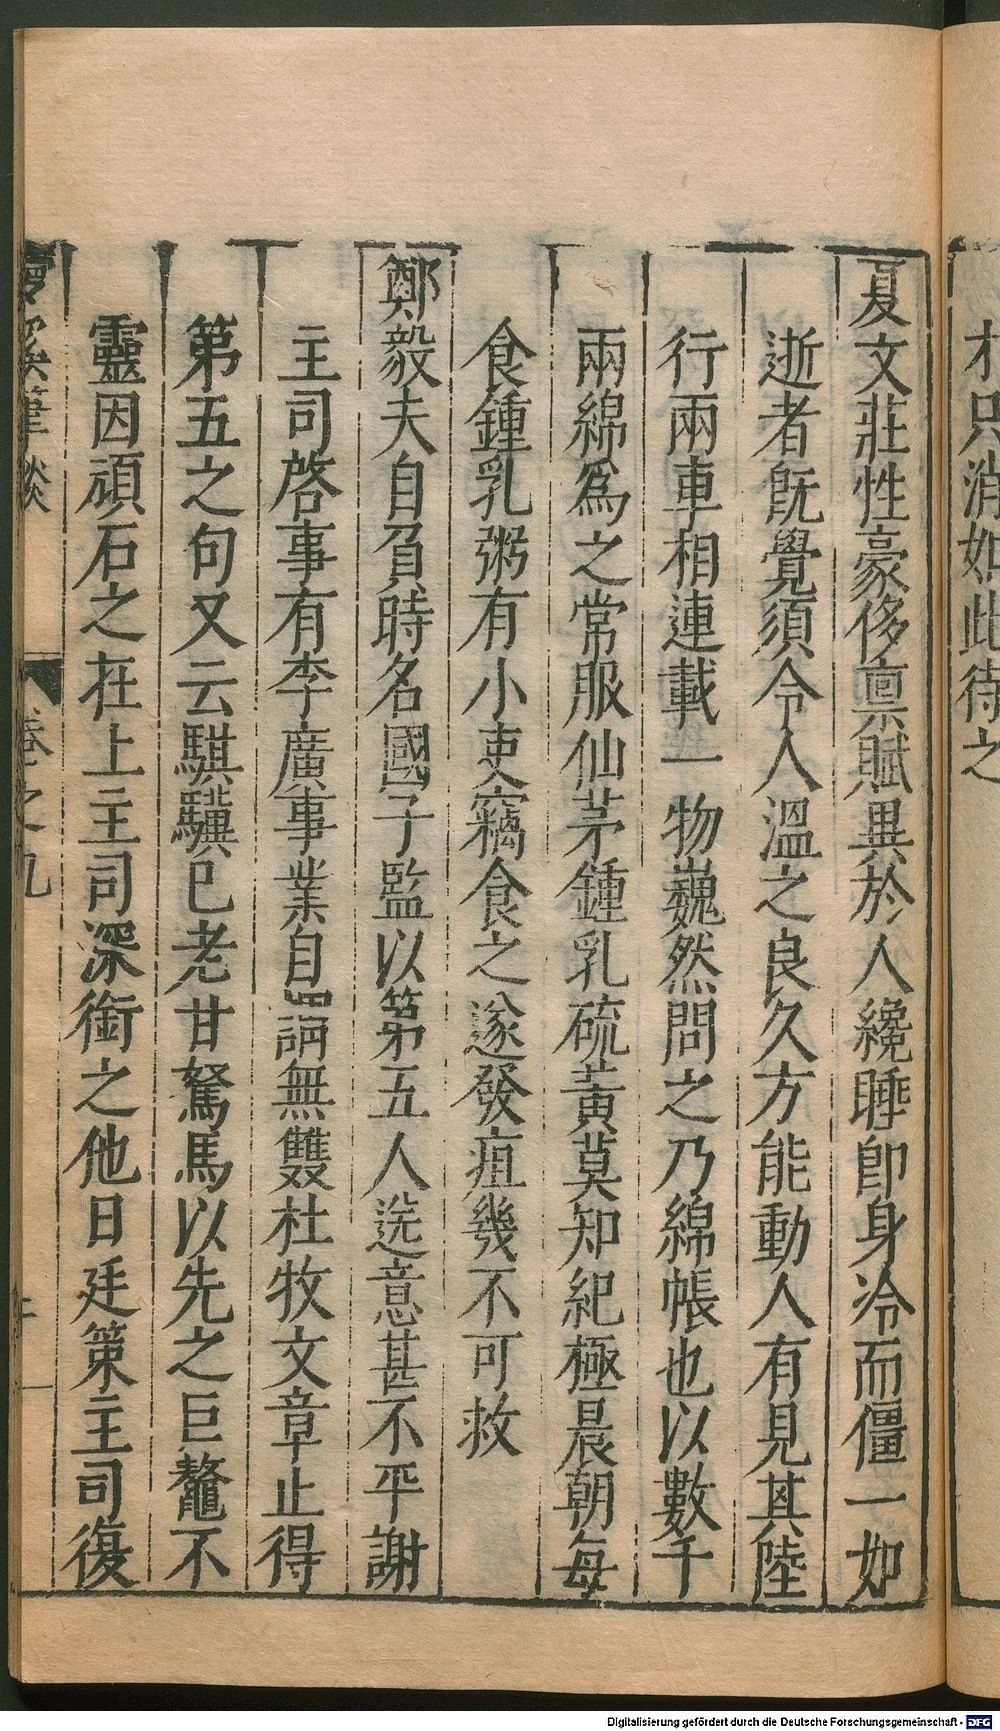 才只消如此待之
夏文莊性豪侈禀賦異於人纔睡卽身冷而僵一如
逝者旣覺須令人溫之良久方能動人有見其陸
行兩車相連載一物巍然問之乃綿帳也以數千
兩綿爲之常服仙茅鍾乳硫黃莫知紀極晨朝每
食鍾乳粥有小吏竊食之遂發疽幾不可救
鄭毅夫自負時名國子監以第五人选意甚不平謝
主司啓事有李廣事業自謂無雙杜牧文章止得
第五之句又云騏驥已老甘駑馬以先之巨鰲不
靈因頑石之在上主司深銜之他日廷策主司復
夢溪筆談
卷之九
Digitalisierung gefördert durch die Deutsche Forschungsgemeinschaft - DFG